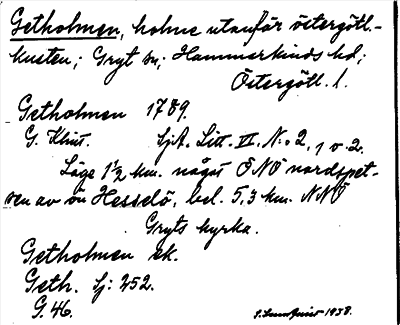 Getholmen, holme utanför östergötl.-
kusten; Gryt sn; Hammarkinds hd;
Östergötl. l.
Getholmen 1789.
G. Klint. SjA. Litt. VI. N:o 2, 1 o. 2.
Läge 1½ km. något ONO nordspet-
sen av ön Hesselö, bel. 5,3 km. NNO
Gryts kyrka.
Getholmen ek.
Geth. Sj: 252.
G. 46.
1938.